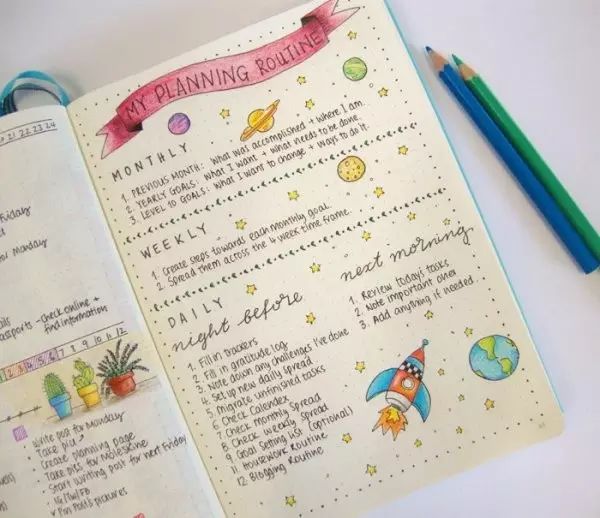 21 22 23 24
Friday
for Monday
- check online +
find information
3 4 5 6 7 8 9 10 11 12
Write post for Monday
Take pics
Create planning page
Take pics for Moleskine
Start writing post for next Friday
IG/TW/FB
Pin Post's pictures
MY PLANNING ROUTINE
MONTHLY
1. PREVIOUS MONTH: What was accomplished + where I am.
2. YEARLY GOALS: What I want + what needs to be done.
3. LEVEL 10 GOALS: What I want to change + ways to do it.
WEEKLY
1. Create steps towards each monthly goal.
2. Spread them across the 4 week time frame.
DAILY
night before
1. Fill in trackers
2. Fill in gratitude log
3. Note down any challenges I've done
4. Set up new daily spread
5. Migrate unfinished tasks
6. Check Calendex
7. Check monthly spread
8. Check weekly spread
9. Goal Setting list (optional)
11. Housework Routine
12. Blogging Routine
next morning
1. Review today's tasks
2. Note important ones
3. Add anything if needed